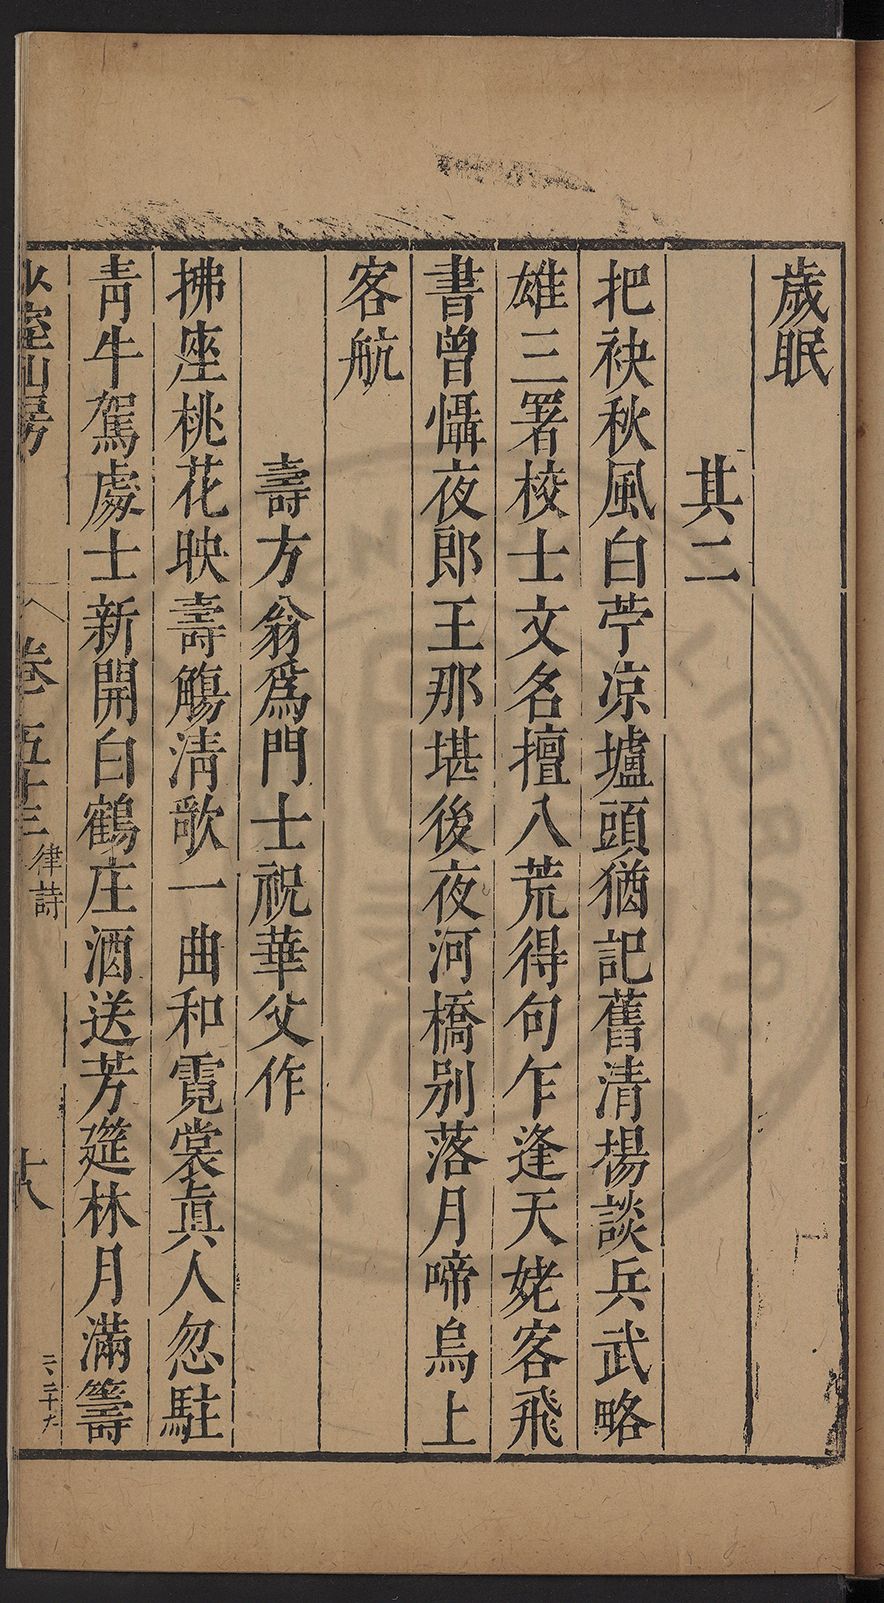 歲眠
其二
把袂秋風白苧凉壚頭猶記舊清揚談兵武略
雄三署校士文名擅八荒得句乍逢天姥客飛
書曾懾夜郎王那堪後夜河橋别落月啼烏上
客航
壽方翁爲門士祝華父作
拂座桃花映壽觴清歌一曲和霓裳眞人忽駐
靑牛駕處士新開白鶴庄酒送芳筵林月滿籌
少室山房
卷五十三
律詩
十八